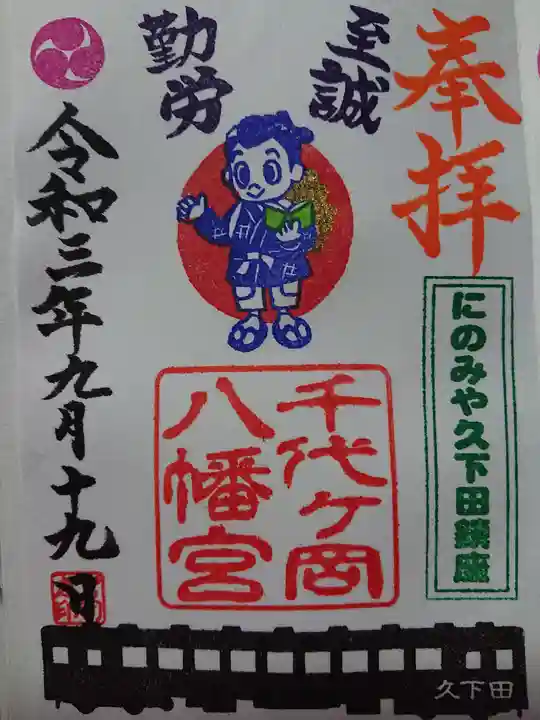 奉拝
至誠
勤労
にのみや久下田鎮座
千代ヶ岡
八幡宮
令和三年九月十九日
久下田